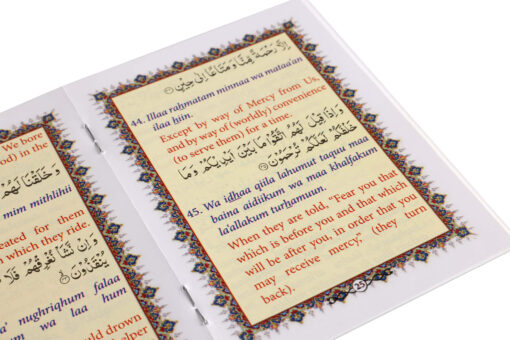 We bore
od) in the
وَخَلَقْنَا لَهُم
mim mithlihii
eated for them
which they ride.
وَإِن نَّشَأْ نُغْرِقْهُمْ فَلَا
يُنقَذُونَ
a' nughriqhum falaa
m wa laa hum
ould drown
elper
إِلَّا رَحْمَةً مِّنَّا وَمَتَاعًا إِلَىٰ حِينٍ
44. Illaa raḥmatam minnaa wa mataa'an
ilaa ḥiin.
Except by way of Mercy from Us,
and by way of (worldly) convenience
(to serve them) for a time.
وَإِذَا قِيلَ لَهُمُ اتَّقُوا مَا بَيْنَ أَيْدِيكُمْ وَمَا
خَلْفَكُمْ لَعَلَّكُمْ تُرْحَمُونَ
45. Wa idhaa qiila lahumut taquu maa
baina aidiikum wa maa khalfakum
la'allakum turḥamuun.
When they are told, "Fear you that
which is before you and that which
will be after you, in order that you
may receive mercy," (they turn
back).
25